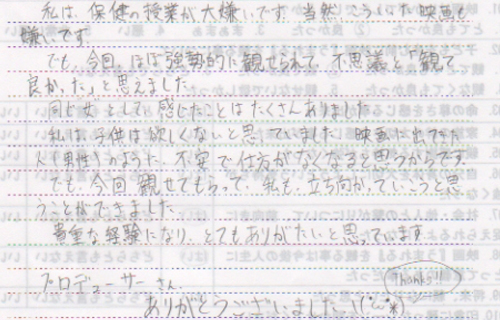 私は、保健の授業が大嫌いです。当然、こういった映画も
嫌いです。
でも、今回、ほぼ強勢的に観せられて、不思議と「観て
良かった」と思えました。
同じ女として感じたことはたくさんありました。
私は、子供は欲しくないと思っていました。映画に出てた
人(男性)のように、不安で仕方がなくなると思うからです。
でも、今回観せてもらって、私も、立ち向かっていこうと思
うことができました。
貴重な経験になり、とてもありがたいと思っています
プロデューサーさん、
Thanks!!!
ありがとうございました